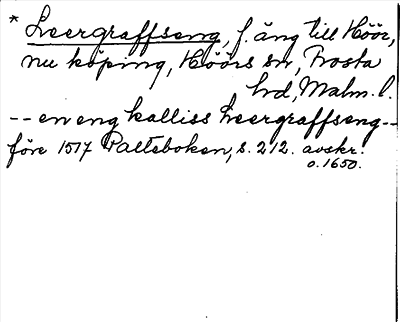 * Leergraffseng, f. äng till Höör,
nu köping, Höörs sn, Frosta
hd, Malm. l.
-- en eng kalliss Leergraffseng --
före 1517 Palteboken, s. 212. avskr.
o. 1650.